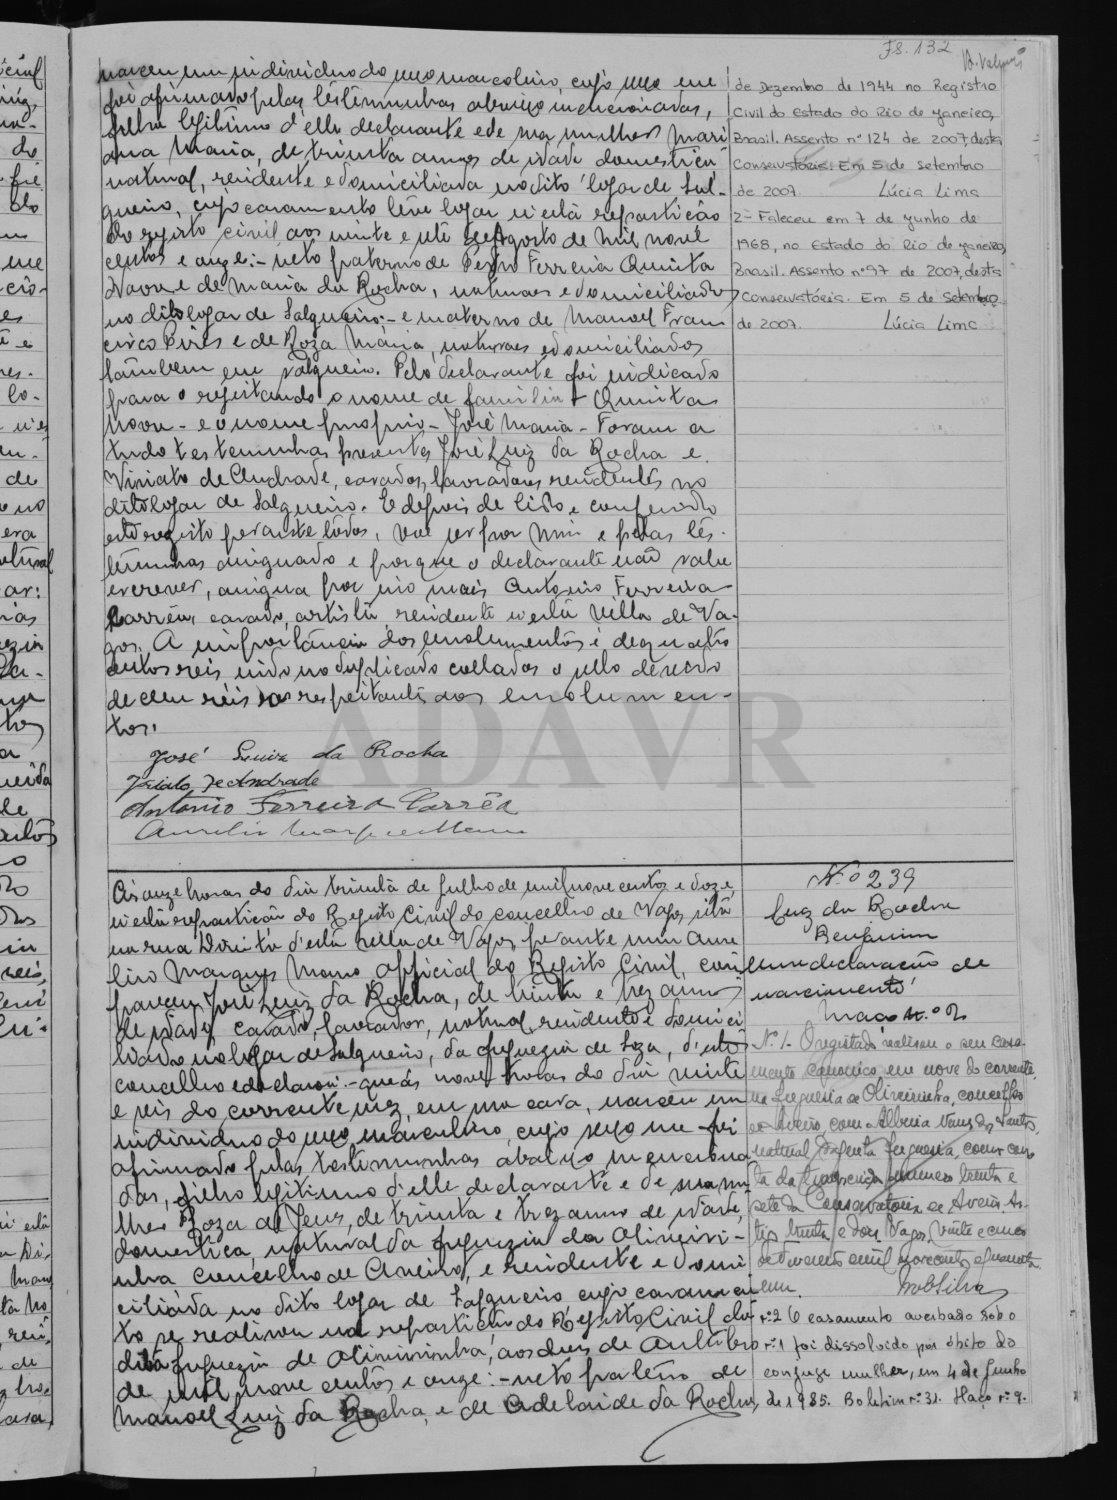 Fs. 132
nasceu um individuo do sexo masculino, cujo sexo me
foi afirmado pelas testemunhas abaixo mencionadas,
filho legitimo d'elle declarante e de sua mulher Mari
ana Maria, de trinta annos de idade domestica
natural, residente e domiciliada no dito logar de Sal-
gueiro, cujo casamento teve logar n'esta repartição
do registo civil aos vinte e sete de Agosto de mil nove
centos e onze:- neto paterno de Pedro Ferreira Quinta
Nova e de Maria da Rocha, naturaes e domiciliados
no dito logar de Salgueiro:- e materno de Manoel Fran
cisco Pires e de Roza Maria, naturaes e domiciliados
tambem em Salgueiro. Pelo declarante foi indicado
para o registando o nome de familia - Quinta
Nova - e o nome proprio - José Maria - Foram a
tudo testemunhas presentes José Luiz da Rocha e
Viriato de Andrade, casados, lavradores residentes no
dito logar de Salgueiro. E depois de lido e conferido
este registo perante todos, vae ser por mim e pelas tes-
temunhas assignado e porque o declarante não sabe
escrever, assigna por isso mais Antonio Ferreira
Corrêa, casado, artista, residente n'esta Villa de Va-
gos. A importancia dos emolumentos é de quatro
centos reis sendo no duplicado collados o sello devido
de cem réis respeitante aos emolumen-
tos.
José Luiz da Rocha
Viriato de Andrade
Antonio Ferreira Corrêa
Aurelio Marques Mano
de Dezembro de 1944 no Registro
Civil do Estado do Rio de Janeiro,
Brasil. Assento nº 124 de 2007, desta
Conservatória. Em 5 de setembro
de 2007. Lúcia Lima
2 - Faleceu em 7 de junho de
1968, no Estado do Rio de Janeiro,
Brasil. Assento nº 97 de 2007, desta
Conservatória. Em 5 de setembro
de 2007. Lúcia Lima
ADAVR
Ás onze horas do dia trinta de Julho de mil nove centos e doze,
n'esta repartição do Registo Civil do concelho de Vagos, sita
na rua Direita d'esta villa de Vagos, perante mim Aure
lio Marques Mano official do Registo Civil, com
pareceu José Luiz da Rocha, de trinta e trez annos
de idade, casado, lavrador, natural, residente e domici
liado no logar de Salgueiro, da freguezia de Soza, d'este
concelho e declarou:- que ás nove horas do dia vinte
e seis do corrente mez, em sua casa, nasceu um
individuo do sexo masculino, cujo sexo me foi
afirmado pelas testemunhas abaixo menciona
das, filho legitimo d'elle declarante e de sua mu
lher Roza de Jesus, de trinta e trez annos de idade,
domestica, natural da freguezia da Oliveiri-
nha concelho de Aveiro, e residente e domi
ciliada no dito logar de Salgueiro cujo casamen
to se realisou na repartição do Registo Civil da
dita freguezia de Oliveirinha, aos dez de Outubro
de mil nove centos e onze:- neto paterno de
Manoel Luiz da Rocha, e de Adelaide da Rocha,
N.º 239
Luiz da Rocha
Benjamim
Uma declaração de
nascimento
Maço n.º 2
N.º 1 - O registado realisou o seu casa-
mento canonico, em nove do corrente,
na freguesia de Oliveirinha, concelho
de Aveiro, com Albina Vaz dos Santos,
natural daquela freguesia, como cons
ta da transcrição numero trinta e
sete da Conservatoria de Aveiro.
Vagos, vinte e cinco
de mil novecentos e quarenta
e um.
n.º 2 O casamento averbado sob o
n.º 1 foi dissolvido por óbito do
conjuge mulher, em 4 de Junho
de 1985. Boletim n.º 31. Maço n.º 9.